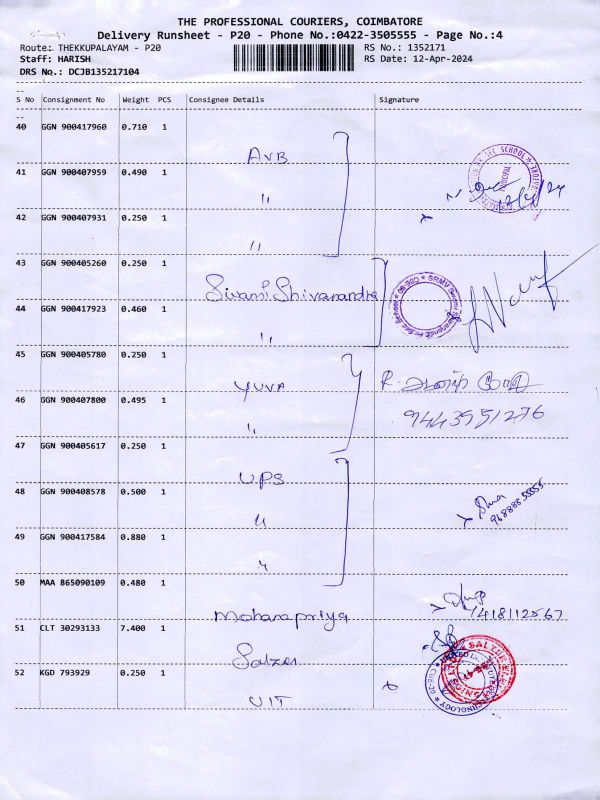 THE PROFESSIONAL COURIERS, COIMBATORE
Delivery Runsheet - P20 - Phone No.:0422-3505555 - Page No.:4
Route: THEKKUPALAYAM - P20 RS No.: 1352171
Staff: HARISH RS Date: 12-Apr-2024
DRS No.: DCJB135217104
--
S No Consignment No Weight PCS Consignee Details Signature
--
40 GGN 900417960 0.710 1
AVB
41 GGN 900407959 0.490 1
"
42 GGN 900407931 0.250 1
"
43 GGN 900405260 0.250 1
Swami Shivanandha
44 GGN 900417923 0.460 1
"
45 GGN 900405780 0.250 1
YUVA
46 GGN 900407800 0.495 1
" 9443951276
47 GGN 900405617 0.250 1
UPS
48 GGN 900408578 0.500 1
"
49 GGN 900417584 0.880 1
"
50 MAA 865090109 0.480 1
Moharapriya 7418112567
51 CLT 30293133 7.400 1
Salzer
52 KGD 793929 0.250 1
UIT